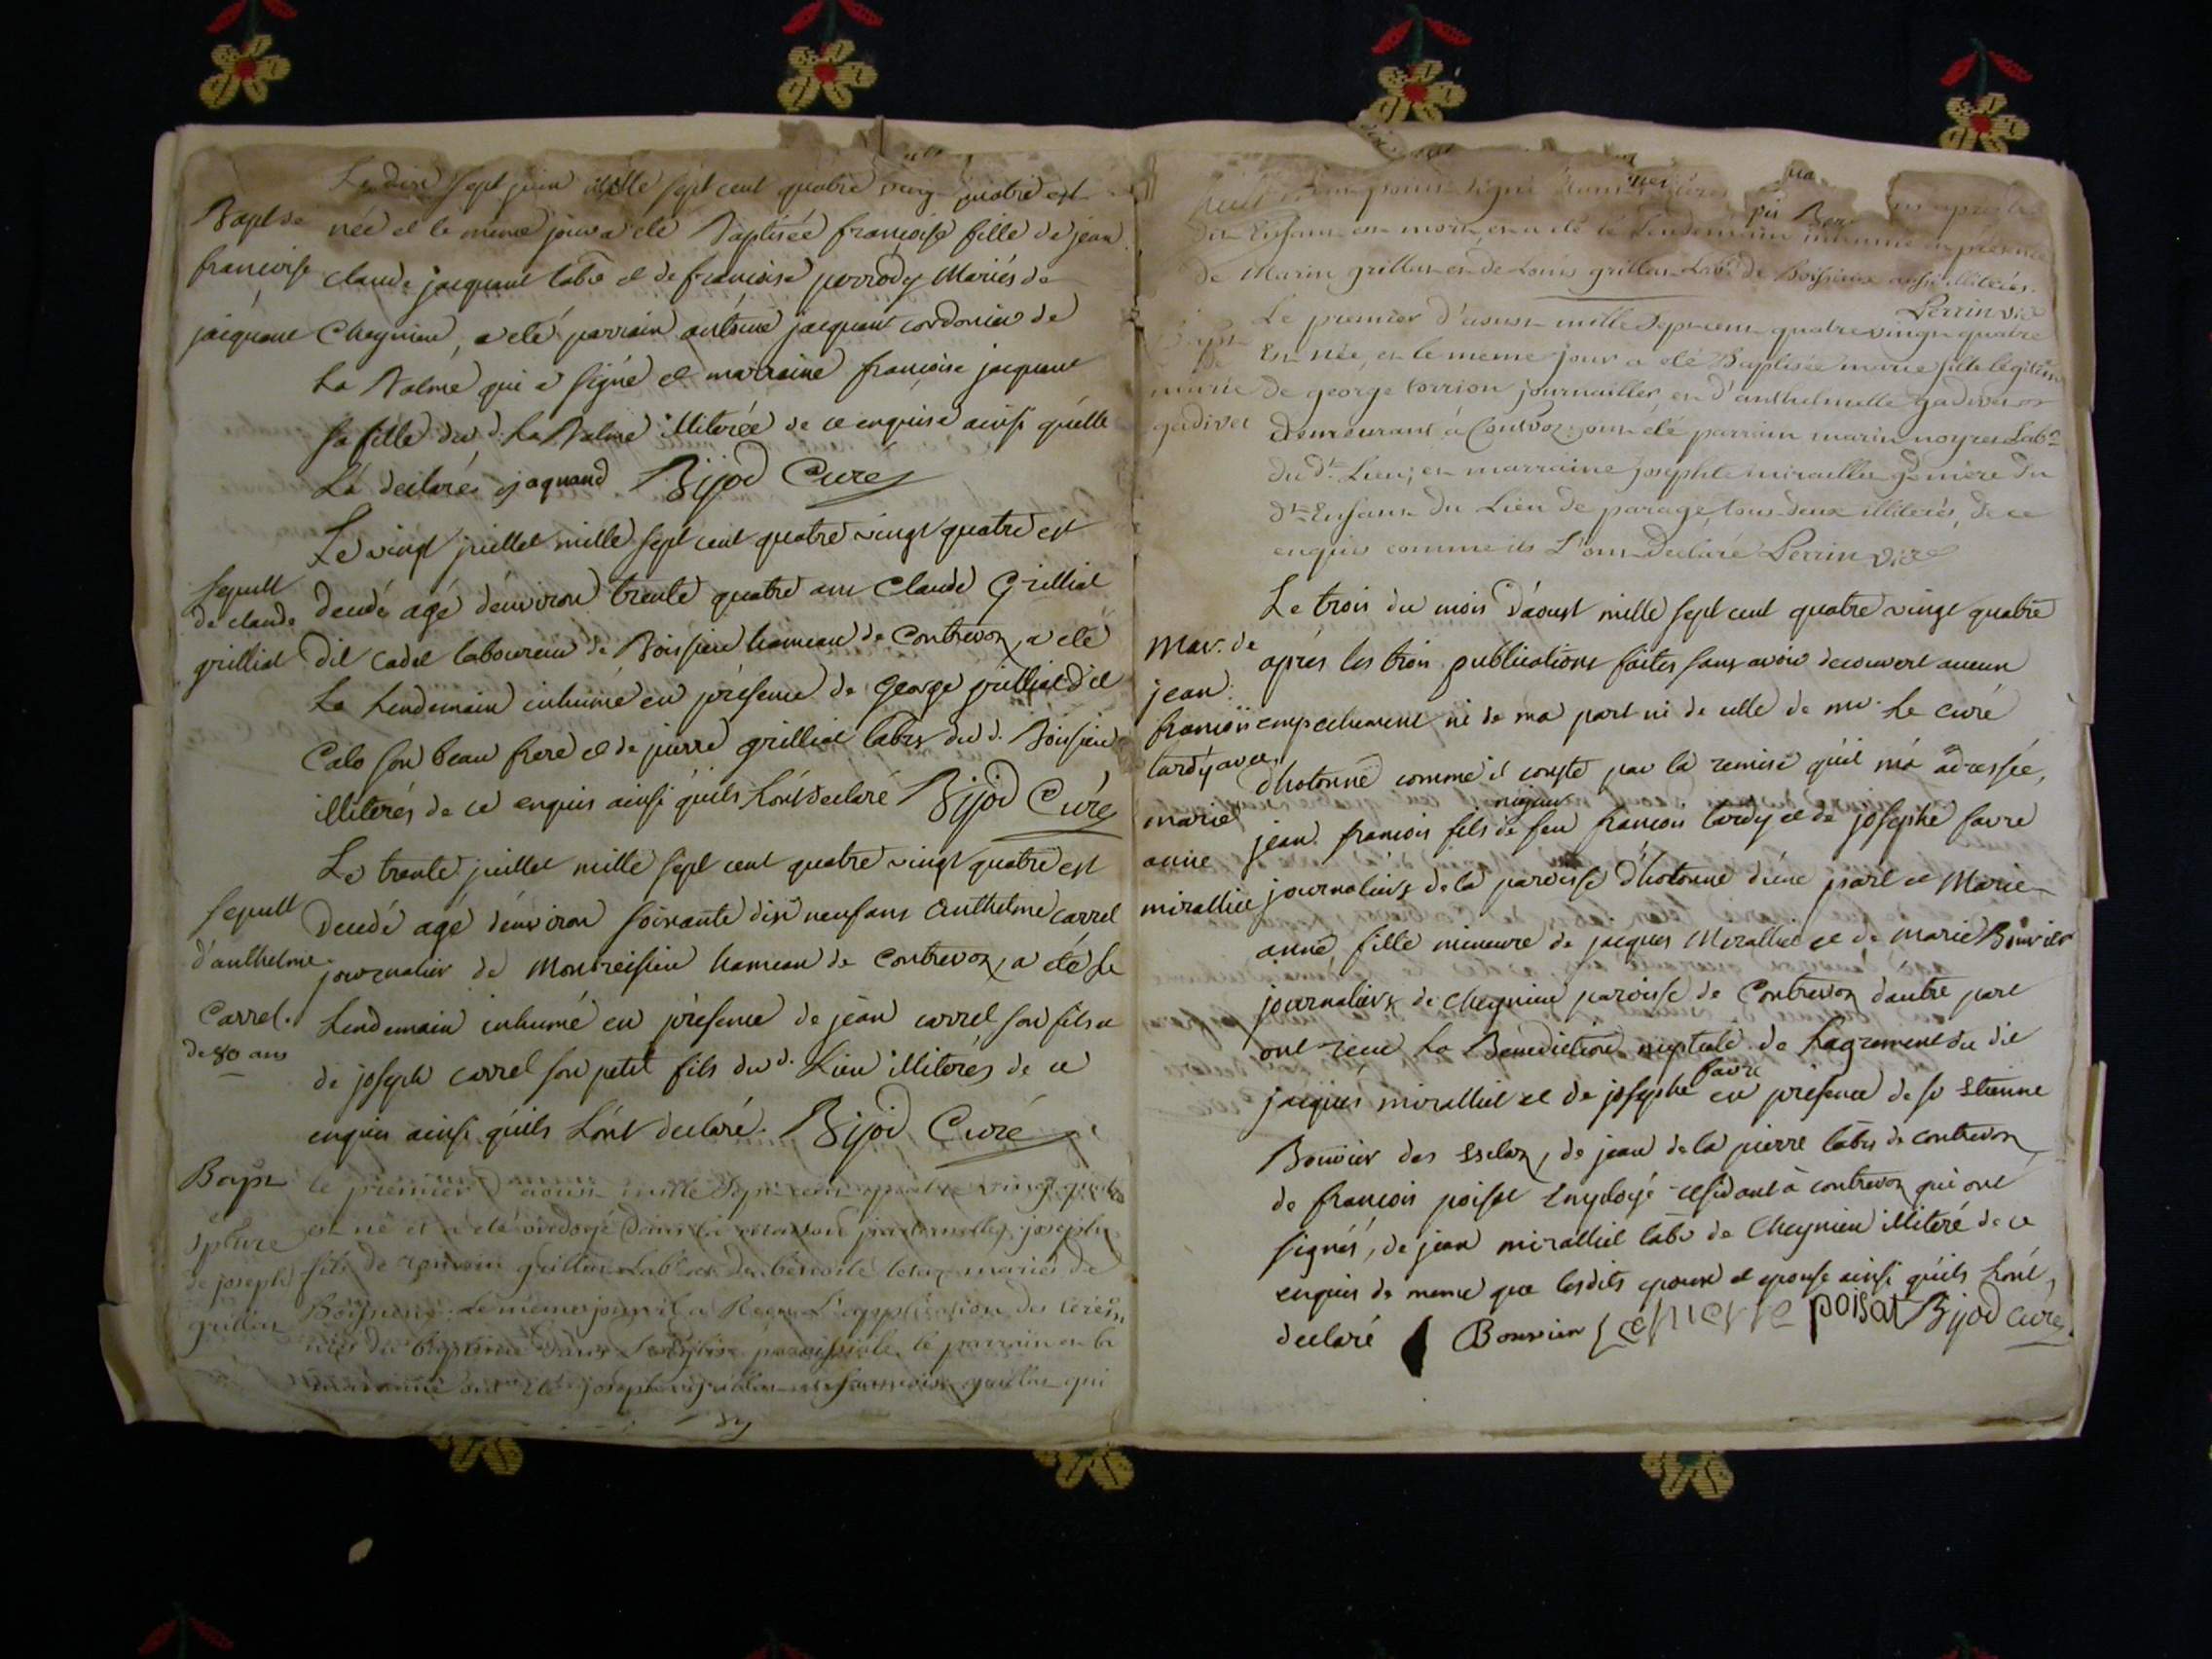 Le dix sept juin mille sept cent quatre vingt quatre est
Bapt de
francoise
jacquant
née et le même jour a été Baptisée francoise fille de jean
claude jacquant labr et de francoise perrody Mariés de
Cheynieu, a été parrain antoine jacquant cordonier de
La Balme qui a signé et marraine francoise jacquant
sa fille dud. La Balme illiterée de ce enquise ainsi quelle
La declaré jaquand Bijod Curé
Le vingt juillet mille sept cent quatre vingt quatre est
Sepult
de claude
grilliat
decedé agé denviron trente quatre ans Claude Grilliat
dit cadet laboureur de Boissieu hameau de Contrevoz, a été
Le Lendemain inhumé en présence de George grilliat dit
Calo son beau frere et de pierre grilliat labrs dud. Boissieu
illiterés de ce enquis ainsi quils Lont declaré Bijod Curé
Le trente juillet mille sept cent quatre vingt quatre est
Sepult
d'anthelme
Carrel.
de 80 ans
decedé agé denviron soixante dix neuf ans Anthelme carrel
journalier de Montreisieu hameau de Contrevoz, a été Le
Lendemain inhumé en présence de jean carrel son fils et
de joseph carrel son petit fils dud. Lieu illiterés de ce
enquis ainsi quils Lont declaré. Bijod Curé
Bapt
Spture
de joseph
grillat
le premier d'aoust mille Sept cent quatre vingt quatre
est né et a été ondoyé dans la maison paternelle joseph
fils de grillat Labr et de benoite mariés de
Boissieu. Le même jour il a Reçu L'application des cérémo
nies du bapteme dans L'eglise paroissiale, le parrain et la
marraine ont été joseph grillat et francoise grillat qui
signé
dit Enfant est mort et a été le Lendemain inhumé en présence
de Marin grillat et de Louis grillat Labr de Boissieux aussi illiterés.
Perrin vic
Bapt
de
marie
gadivet
Le premier d'aoust mille Sept cent quatre vingt quatre
Est née, et le meme jour a été Baptisée marie fille legitime
de george torrion journaillier et d'anthelmette gadivet
demeurant à Contrevoz: ont été parrain marin noyret Labr
du dt. Lieu; et marraine josephte miraillet gd mère du
dt Enfant du Lieu de parage, tous deux illiterés, de ce
enquis comme ils L'ont Declaré Perrin vic
Le trois du mois d'aoust mille sept cent quatre vingt quatre
Mar. de
jean
francois
tardy avec
marie
anne
miralliet
aprés les trois publications faites sans avoir decouvert aucun
empechement ni de ma part ni de celle de mr. Le curé
dhotonne comme il conste par la remise quil m'a adressée,
majeur
jean francois fils de feu francois tardy et de josephe favre
journaliers de la paroisse d'hotonne d'une part et Marie
anne, fille mineure de jacques Miralliet et de marie Bouvier
journaliers de Cheynieu paroisse de Contrevoz dautre part
ont recu La Bénédiction nuptiale de Lagrement du dit
favre
jacques miralliet et de josephe en présence de sr Etienne
Bouvier des Esclaz, de jean de la pierre labrs de contrevoz,
de francois poisat Employé residant à contrevoz qui ont
signés, de jean miralliet labr de Cheynieu illiteré de ce
enquis de meme que lesdits epoux et epouse ainsi quils Lont
declaré Bouvier poisat Bijod curé